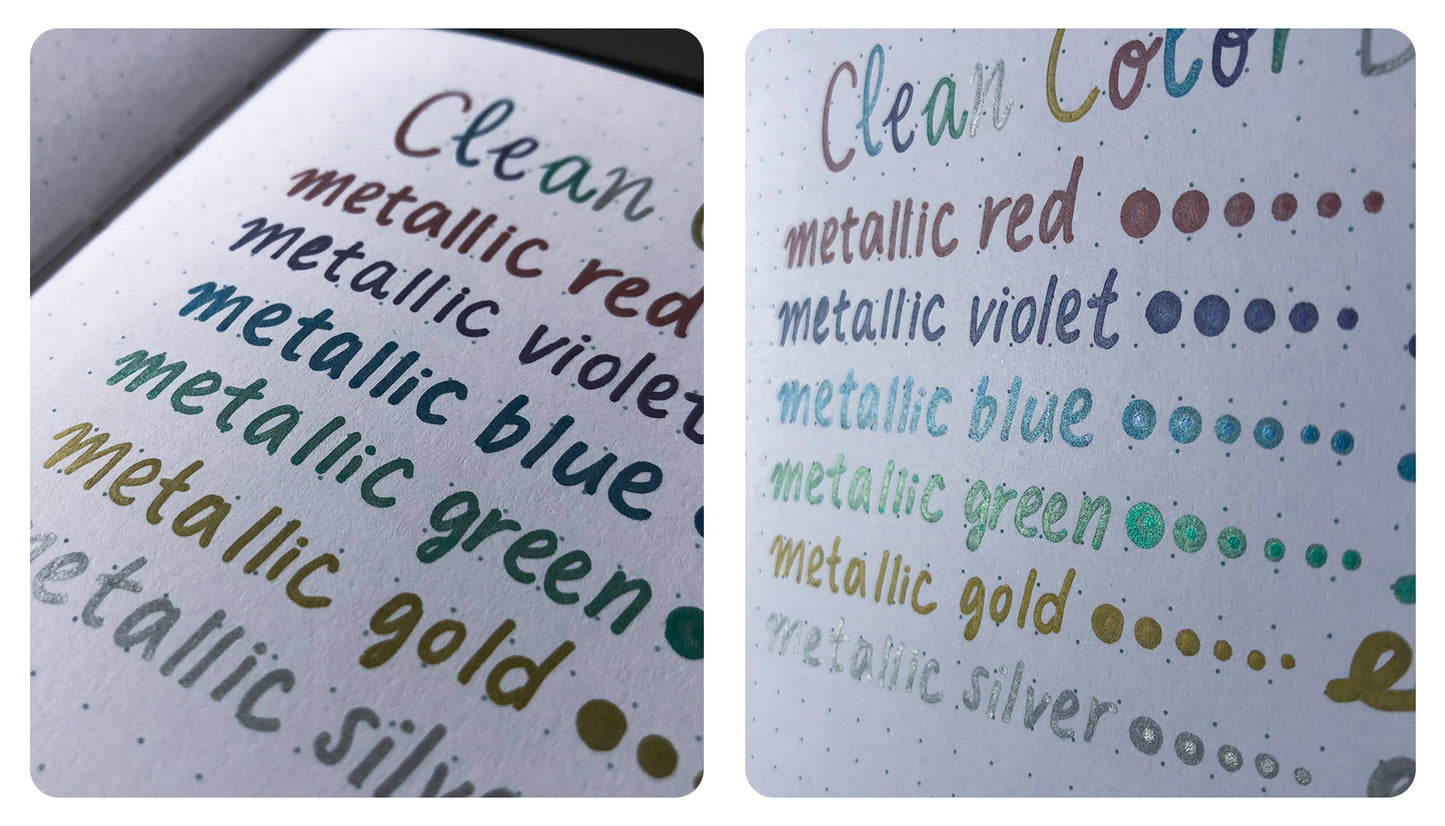 Clean
metallic red
metallic violet
metallic blue
metallic green
metallic gold
metallic silve
Clean Color
metallic red
metallic violet
metallic blue
metallic green
metallic gold
metallic silver